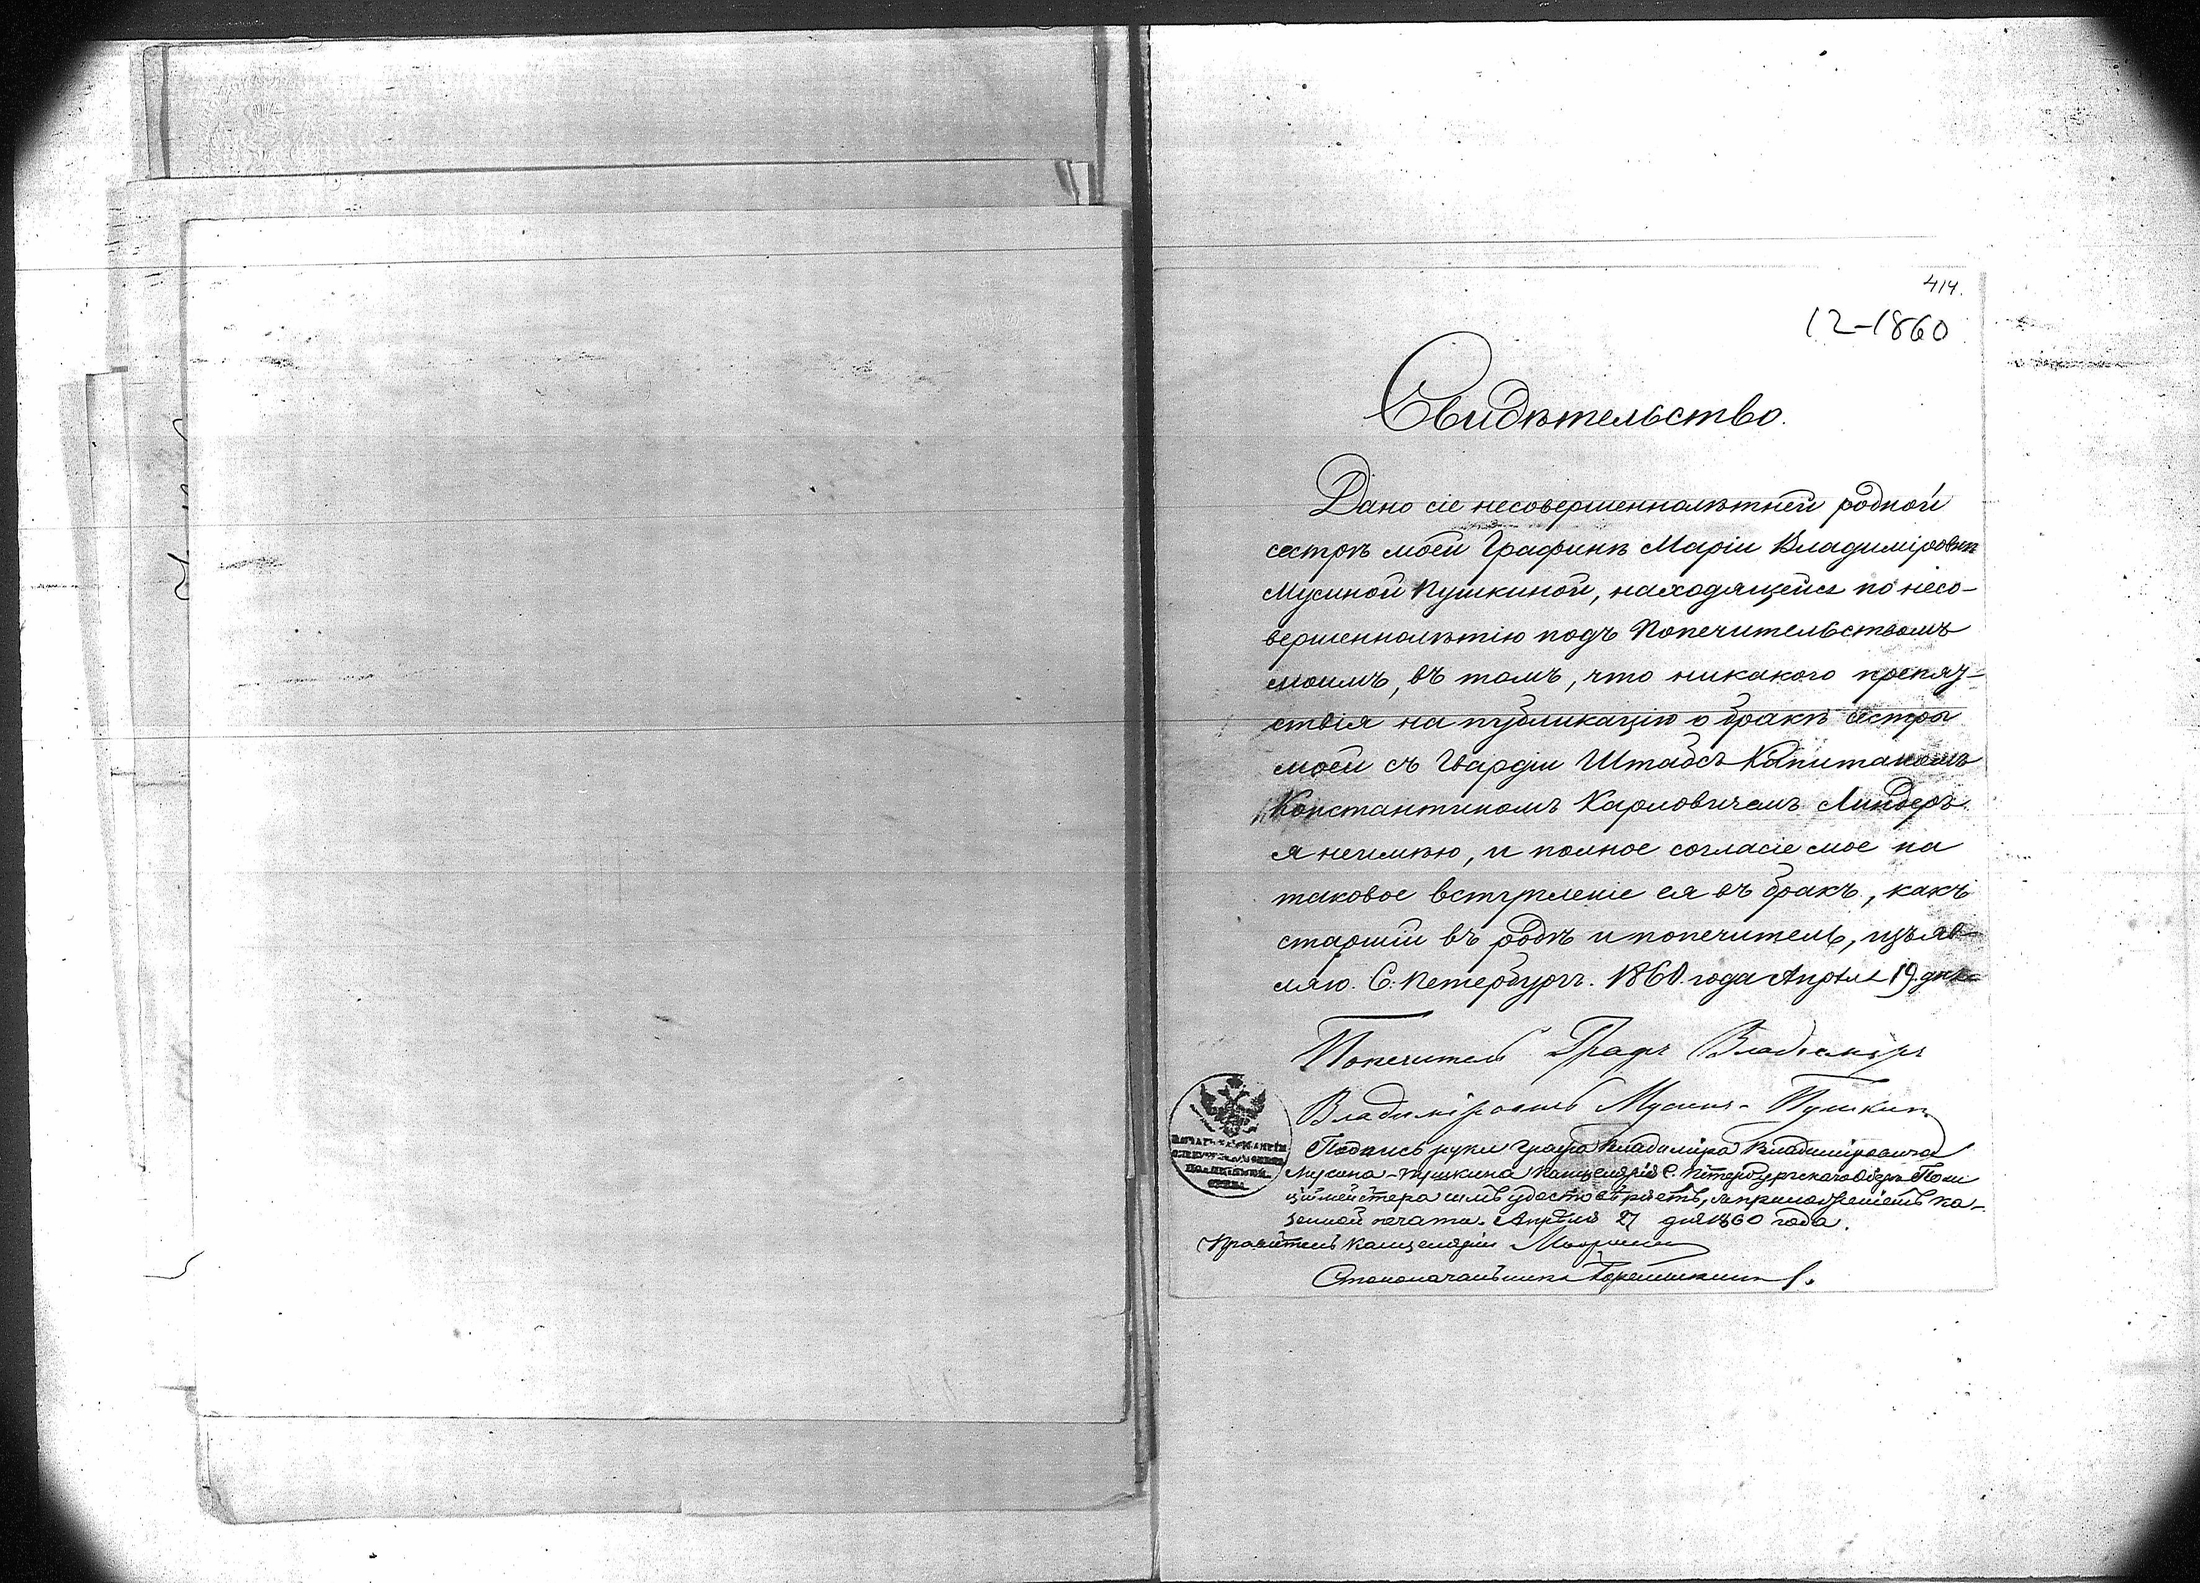 414.
12-1860
Свидѣтельство.
Дано сіе несовершеннолѣтней родной
сестрѣ моей Графинѣ Маріи Владиміровнѣ
Мусиной Пушкиной, находящейся по несо-
вершеннолѣтію подъ Попечительствомъ
моимъ, въ томъ, что никакого препят-
ствія на публикацію о бракѣ сестры
моей съ Гвардіи Штабсъ Капитаномъ
Константиномъ Карловичемъ Линдеръ
я неимѣю, и полное согласіе мое на
таковое вступленіе ея въ бракъ, какъ
старшій въ родѣ и попечитель, изъяв-
ляю. С. Петербургъ. 1860 года Апрѣля 19 дня
Попечитель Графъ Владиміръ
Владиміровичъ Мусинъ-Пушкинъ
Подпись руки Графа Владиміра Владиміровича
Мусина-Пушкина Канцелярія С. Петербургскаго Оберъ Поли
ціймейстера симъ удостовѣряетъ, съ приложеніемъ ка-
зенной печати. Апрѣля 27 дня 1860 года.
Правитель Канцеляріи
Столоначальникъ